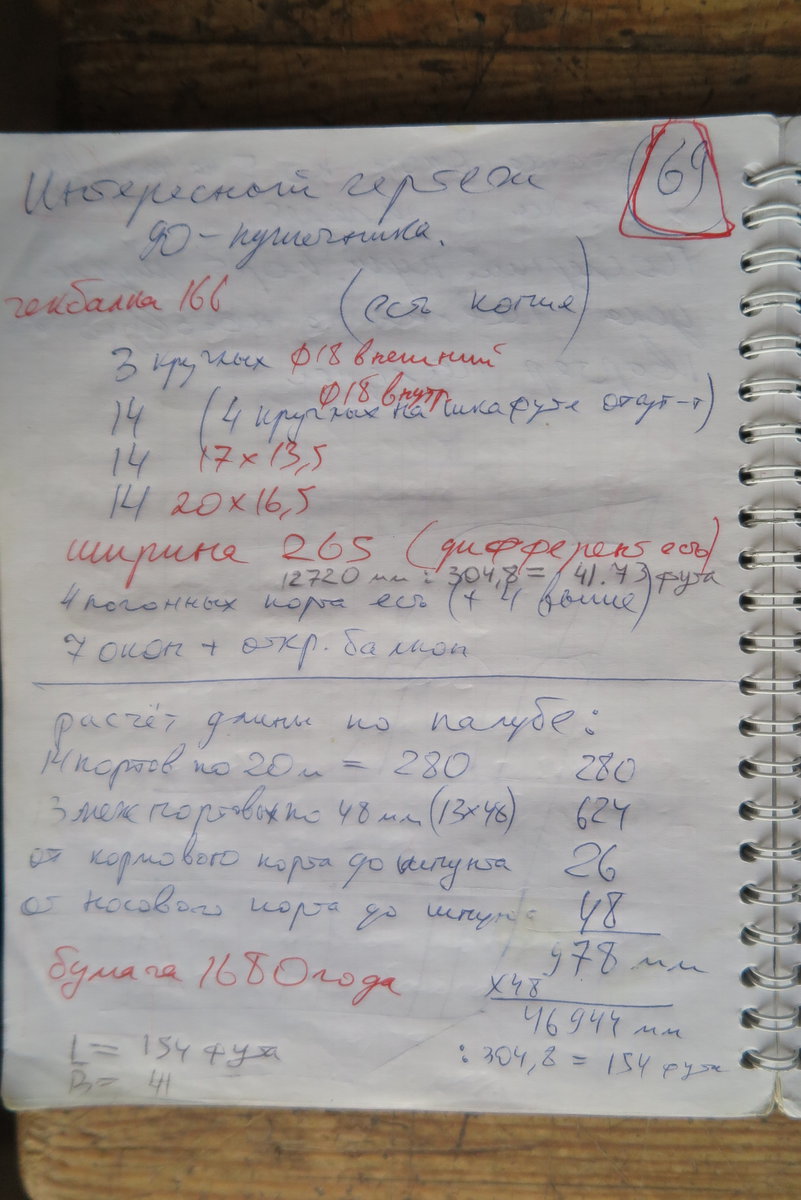 69
Интересный чертеж
90-пушечника.
гекбалка 166 (есть копия)
3 круглых ф18 внешний
ф18 внутр.
14 (4 круглых на шкафуте отсут-т)
14 17х13,5
14 20х16,5
ширина 265 (дифферент есть)
12720 мм : 304,8 = 41.73 фута
4 погонных порта есть (+ 4 выше)
7 окон + откр. балкон
расчёт длины по палубе:
14 портов по 20 м = 280 280
13 межпортовых по 48 мм (13х48) 624
от кормового порта до шпунта 26
от носового порта до шпунта 48
978 мм
бумага 1680 года х48
46944 мм
L = 154 фута : 304,8 = 154 фута
B = 41